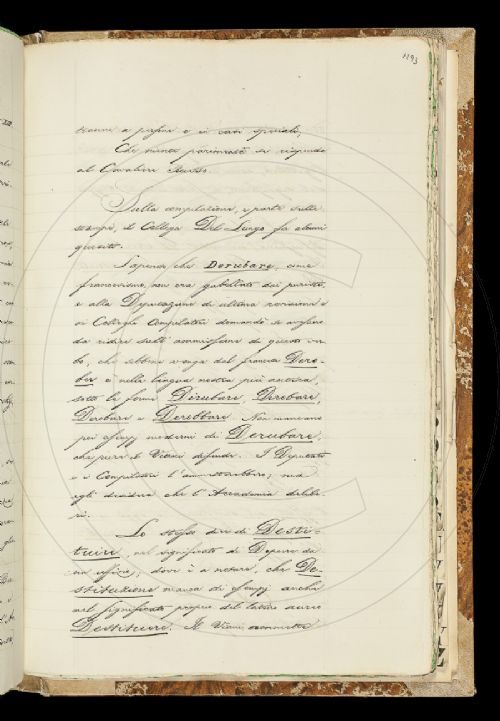 1193
a
Che niente
al Cavaliere
Sulla compilazione, e parte sulla
stampa, il Collega Del Lungo fa alcuni
quesiti.
Sapendo che Derubare, come
francesismo, non era gabellato dai puristi,
e alla Deputazione di ultima revisione e
ai Colleghi Compilatori domandò se
da ridire sulla ammissione di questo ver-
bo, che sebbene venga dal francese Dero-
ber è nella lingua nostra più antica,
sotto le forme Dirubare, Dirobare,
Derobare e Derobbare. Non mancano
poi esempj moderni di Derubare,
che pure il Viani difende. I Deputati
e i Compilatori l'ammetterebbero; ma
egli desidera che l'Accademia delibe-
ri.
Lo stesso dice di Desti-
tuire, nel significato di Deporre da
un ufficio; dove è a notare, che De-
stituzione manca di esempj anche
nel significato proprio del latino
Destituere. Il Viani